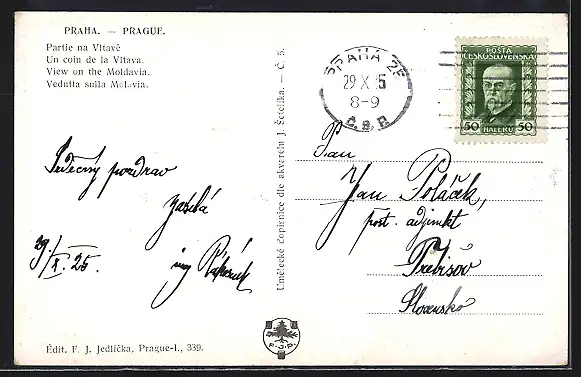 PRAHA. — PRAGUE.
Partie na Vltavě
Un coin de la Vltava.
View on the Moldavia.
Vedutta sulla Moldavia.
Srdečný pozdrav
zasílá
ing
29./X. 25.
Édit. F. J. Jedlička, Prague-I., 339.
Umělecké dopisnice dle akvarelu J. Šetelíka. — Č. 5.
F. J. P.
PRAHA 25
29 X 25
8-9
Č.S.P.
POŠTA
ČESKOSLOVENSKÁ
50 HALÉŘŮ 50
Pan
Jan Poláček,
pošt. adjunkt
Trebišov
Slovensko